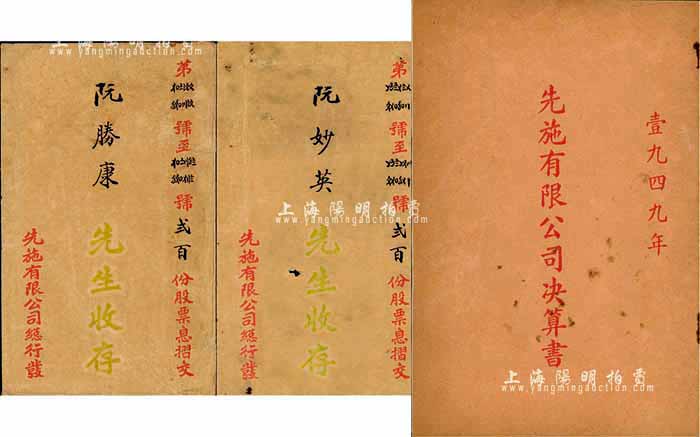 上海陽明拍賣
www.yangmingauction.com
第
號至
號
弍百
份股票息摺交
阮勝康
先生收存
先施有限公司總行發
第
號至
號
弍百
份股票息摺交
阮妙英
先生收存
先施有限公司總行發
上海陽明拍賣
www.yangmingauction.com
壹九四九年
先施有限公司决算書
上海陽明拍賣
www.yangmingauction.com